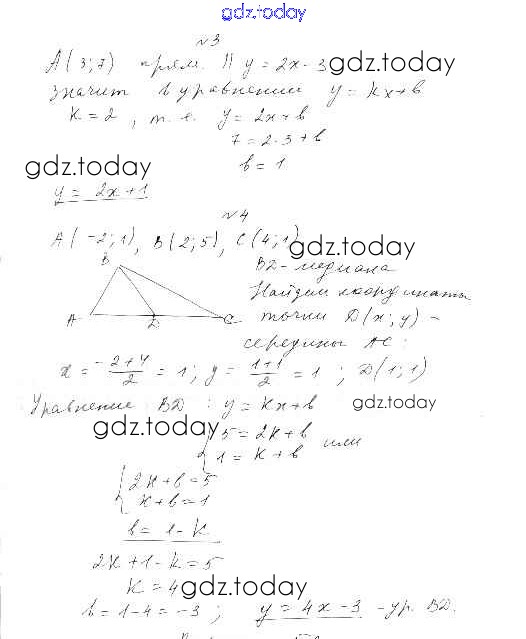 gdz.today
№3
A(3;7) прям. || y = 2x-3 gdz.today
Значит в уравнении y = kx+b
K = 2, т.е. y = 2x+b
7 = 2·3+b
gdz.today b = 1
y = 2x+1
№4
A(-2;1), B(2;5), C(4;1) gdz.today
B BD - медиана
Найдем координаты
A D C точки D(x;y) -
середины AC:
x = -2+4/2 = 1; y = 1+1/2 = 1; D(1;1)
Уравнение BD: y = Kx+b gdz.today
gdz.today
{5 = 2K+b или
1 = K+b
{2K+b = 5
K+b = 1
b = 1-K
2K+1-K = 5
K = 4 gdz.today
b = 1-4 = -3; y = 4x-3 - ур. BD.